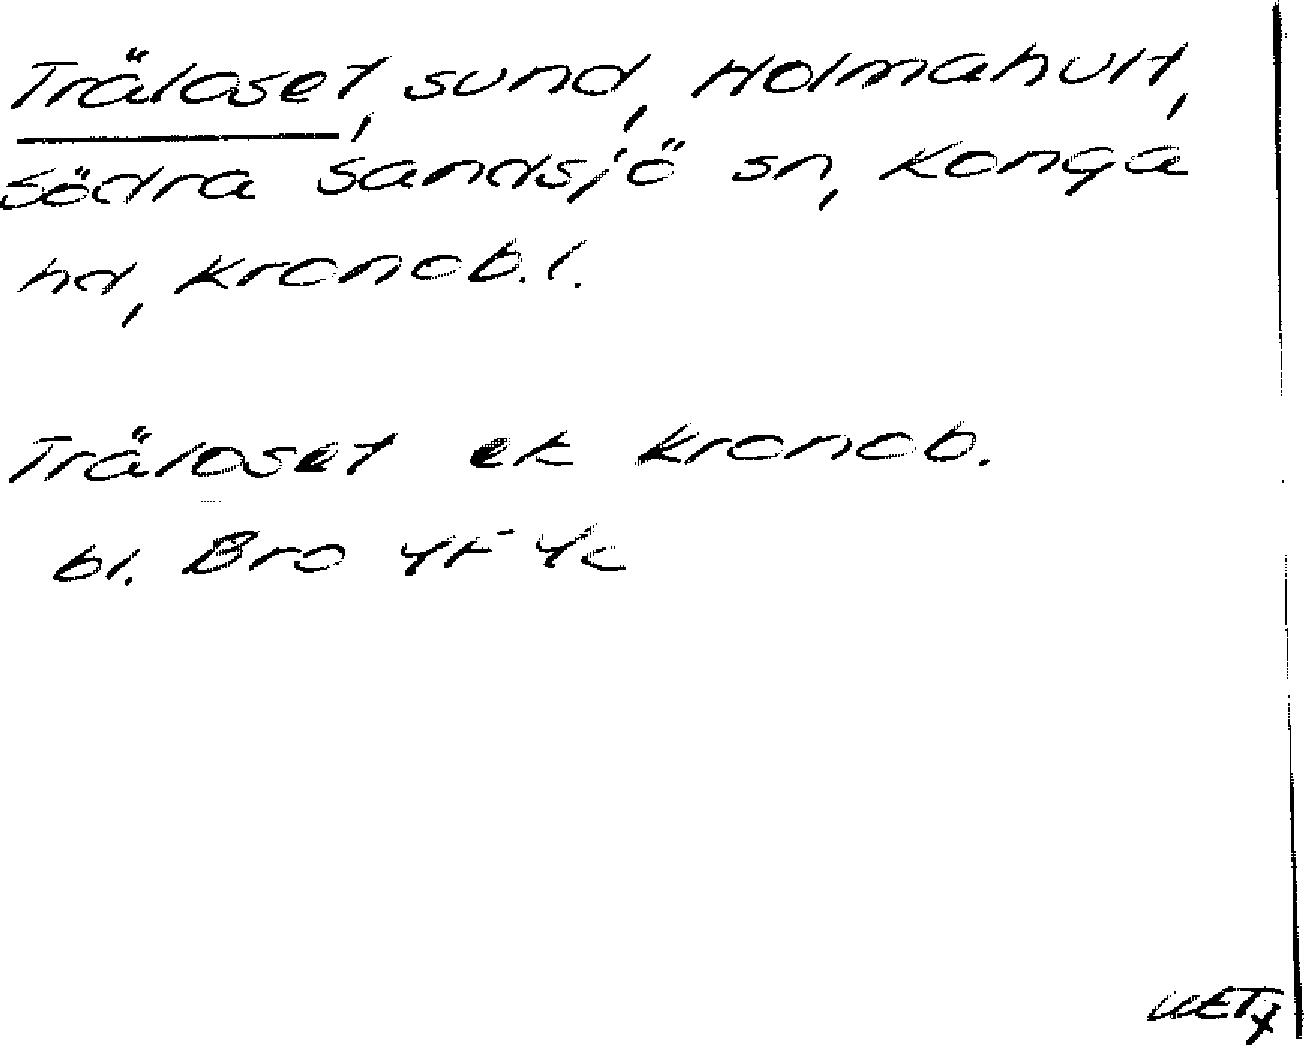 Träloset, sund, Holmahult,
Södra Sandsjö sn, Konga
hd, Kronob. l.
Träloset ek Kronob.
bl. Bro 4F 4c